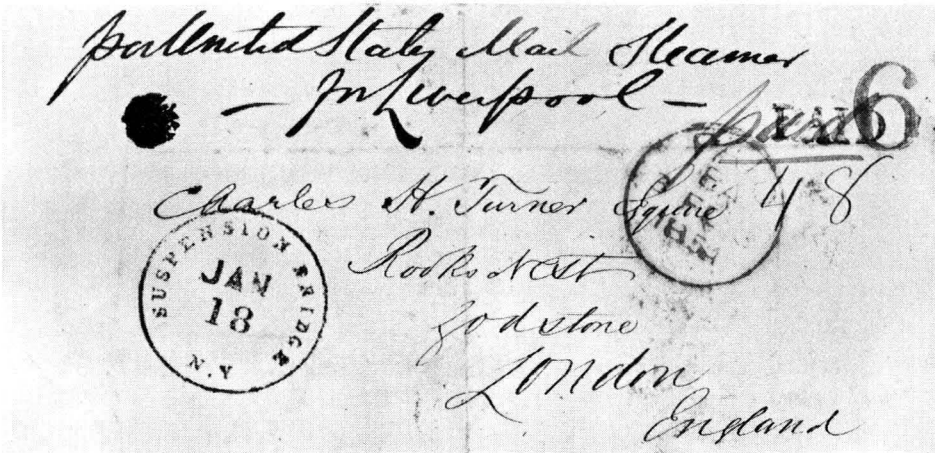 per United States Mail Steamer
— for Liverpool —
paid
PAID
6
48
Charles H. Turner Esquire
Rooks Nest
Godstone
London
England
SUSPENSION BRIDGE
JAN
18
N.Y